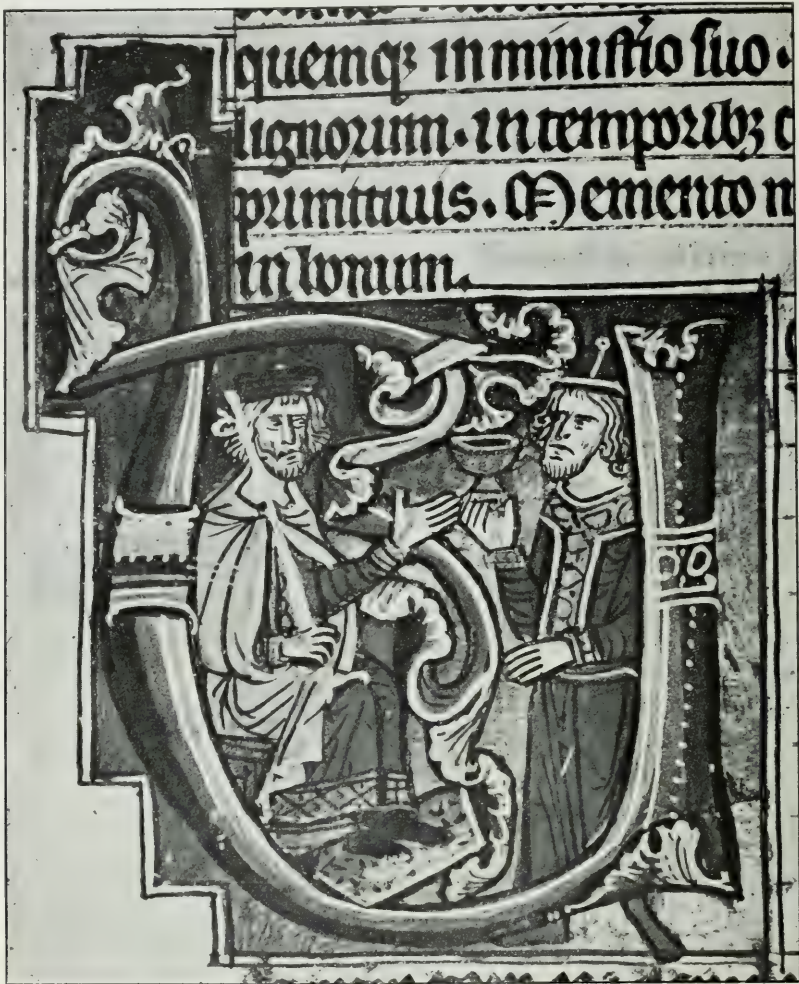 quemq; in ministío suo.
lignorum. in temporibz c
primitiuis. Memento m
in bonum.